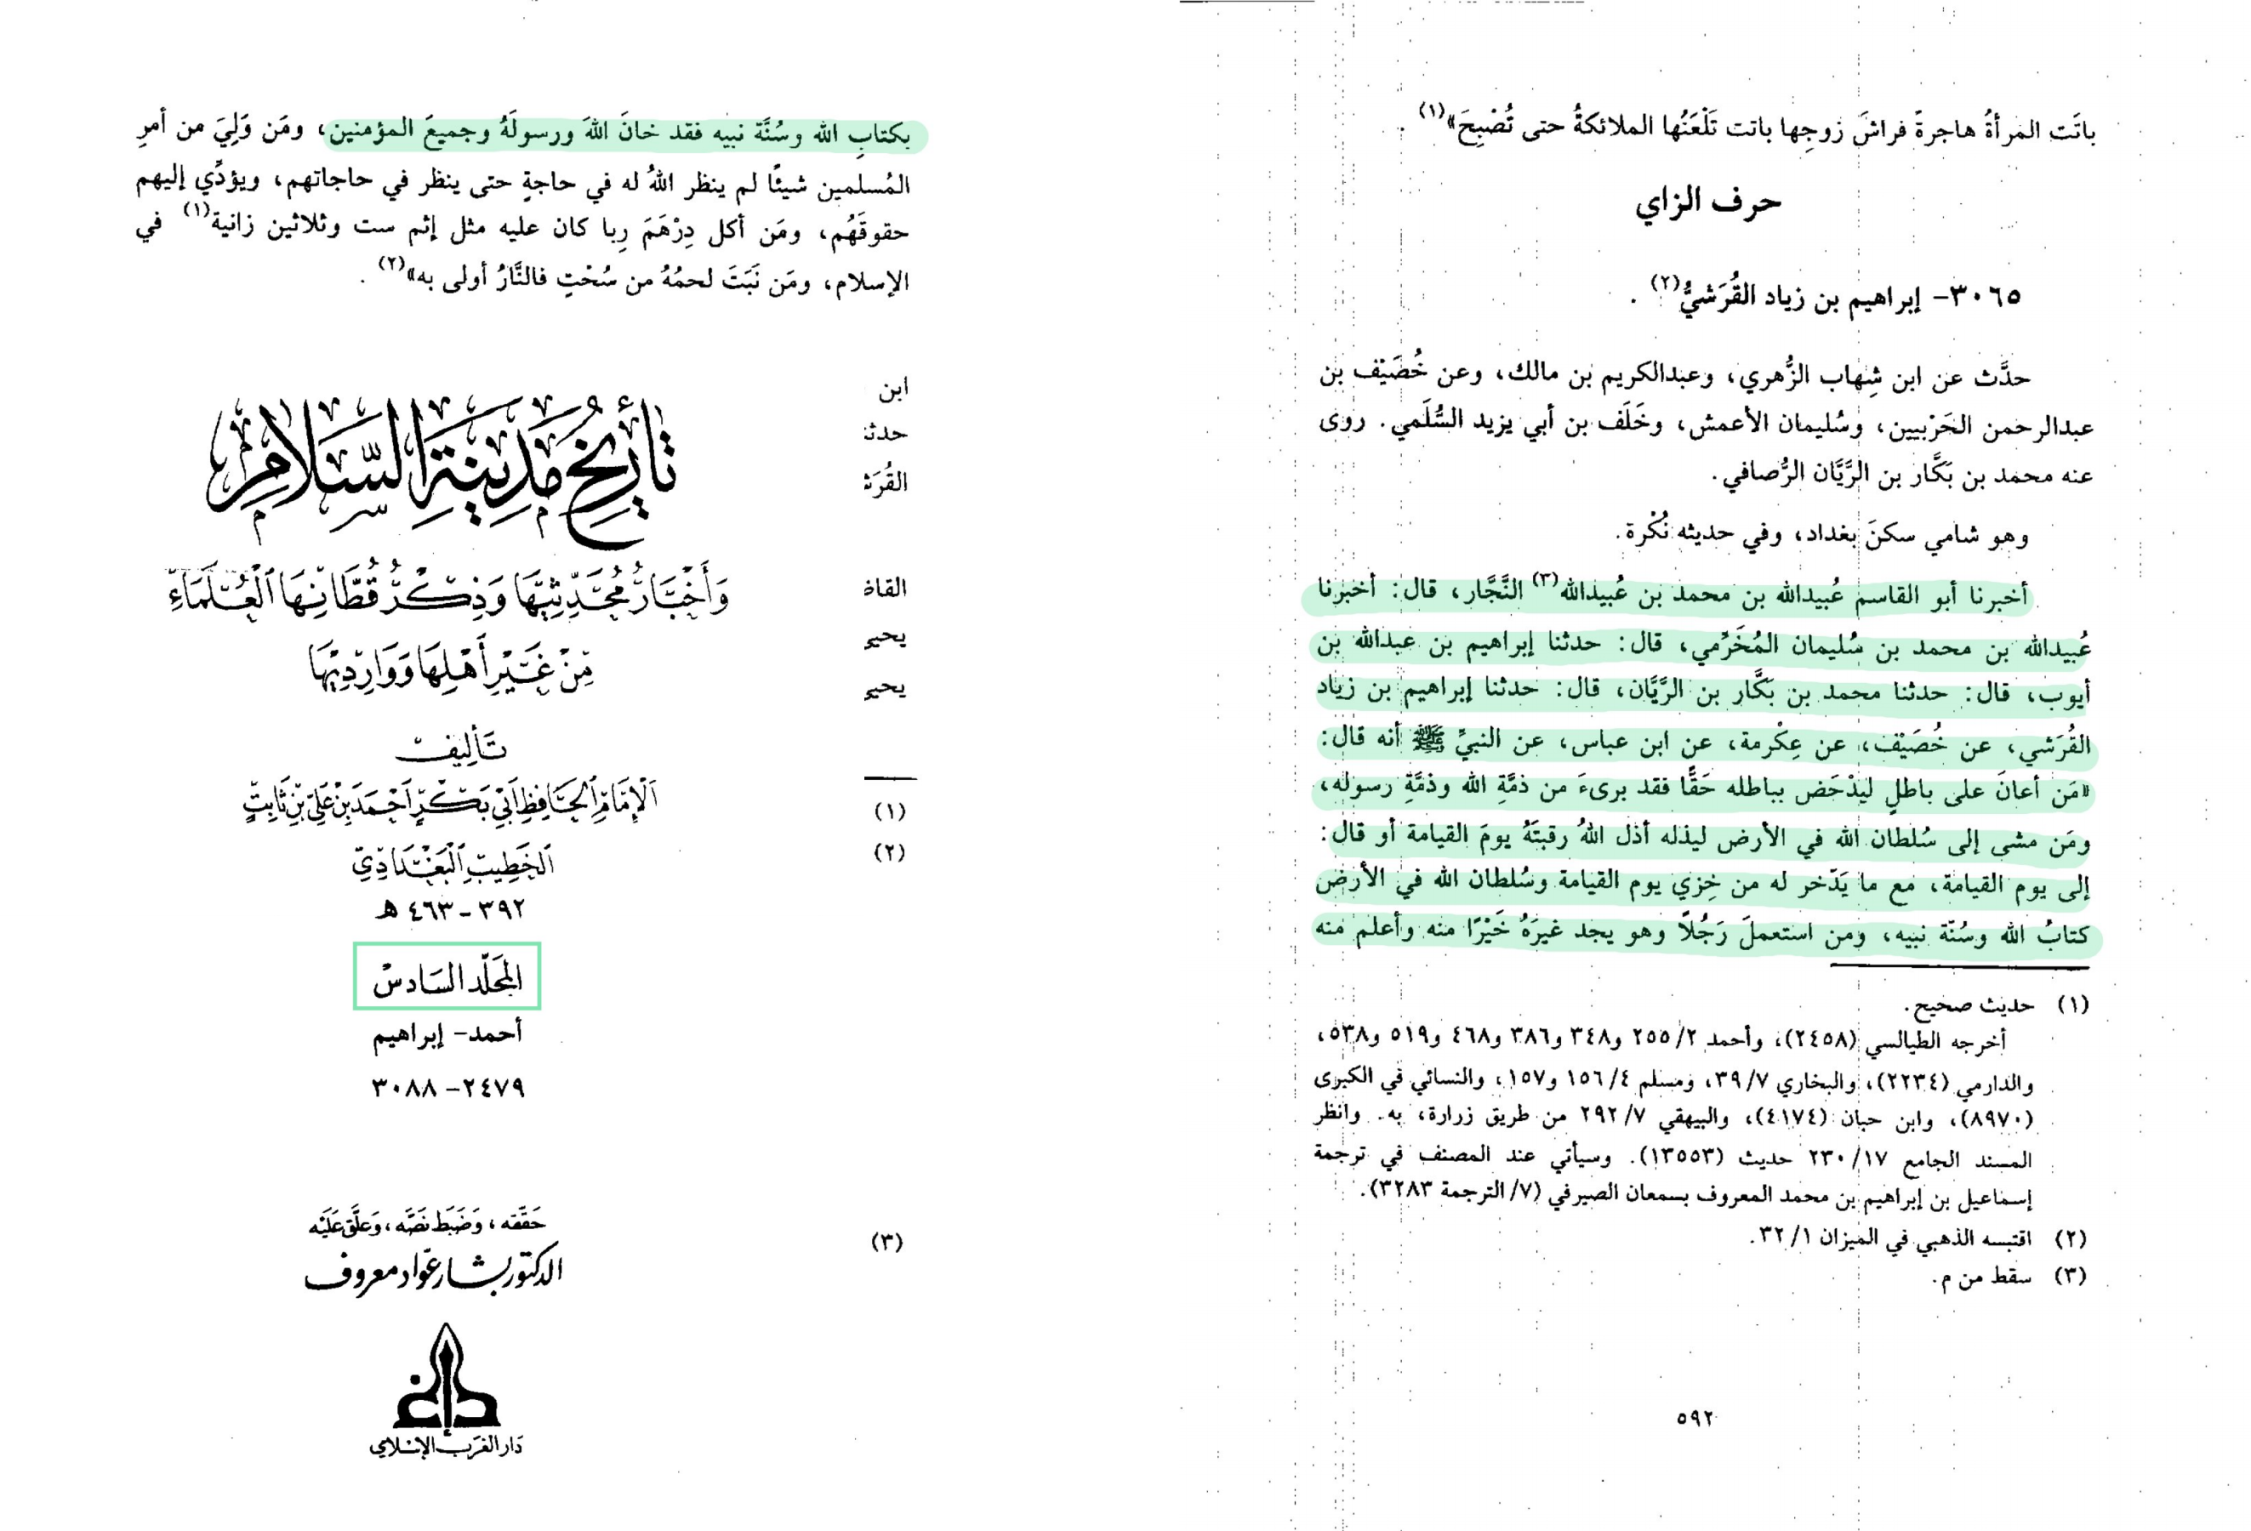 باتَت المرأةُ هاجرةً فراشَ زوجِها باتت تَلْعَنُها الملائكةُ حتى تُصْبِحَ»(١) .
حرف الزاي
٣٠٦٥- إبراهيم بن زياد القُرَشيُّ(٢) .
حدَّث عن ابن شِهاب الزُّهري، وعبدالكريم بن مالك، وعن خُصَيْف بن
عبدالرحمن الحَرْبيين، وسُليمان الأعمش، وخَلَف بن أبي يزيد السُّلَمي. روى
عنه محمد بن بَكَّار بن الرَّيَّان الرُّصافي.
وهو شامي سكنَ بغداد، وفي حديثه نُكْرة.
أخبرنا أبو القاسم عُبيدالله بن محمد بن عُبيدالله(٣) النَّجَّار، قال: أخبرنا
عُبيدالله بن محمد بن سُليمان المُخَرِّمي، قال: حدثنا إبراهيم بن عبدالله بن
أيوب، قال: حدثنا محمد بن بَكَّار بن الرَّيَّان، قال: حدثنا إبراهيم بن زياد
القُرَشي، عن خُصَيْف، عن عِكْرمة، عن ابن عباس، عن النبيِّ ﷺ أنه قال:
«مَن أعانَ على باطلٍ ليدْحَض بباطله حَقًّا فقد برىءَ من ذمَّةِ الله وذمَّةِ رسوله،
ومَن مشى إلى سُلطان الله في الأرض ليذله أذل اللهُ رقبتَهُ يومَ القيامة أو قال:
إلى يوم القيامة، مع ما يَدّخر له من خِزي يوم القيامة وسُلطان الله في الأرض
كتابُ الله وسُنّة نبيه، ومن استعملَ رَجُلاً وهو يجد غيرَهُ خَيْرًا منه وأعلم منه
(١) حديث صحيح.
أخرجه الطيالسي (٢٤٥٨)، وأحمد ٢/ ٢٥٥ و٣٤٨ و٣٨٦ و٤٦٨ و٥١٩ و٥٣٨،
والدارمي (٢٢٣٤)، والبخاري ٧/ ٣٩، ومسلم ٤/ ١٥٦ و١٥٧، والنسائي في الكبرى
(٨٩٧٠)، وابن حبان (٤١٧٤)، والبيهقي ٧/ ٢٩٢ من طريق زرارة، به. وانظر
المسند الجامع ١٧/ ٢٣٠ حديث (١٣٥٥٣). وسيأتي عند المصنف في ترجمة
إسماعيل بن إبراهيم بن محمد المعروف بسمعان الصيرفي (٧/ الترجمة ٣٢٨٣).
(٢) اقتبسه الذهبي في الميزان ١/ ٣٢.
(٣) سقط من م.
٥٩٢
بكتابِ الله وسُنَّة نبيه فقد خانَ اللهَ ورسولَهُ وجميعَ المؤمنين، ومَن وَلِيَ من أمرِ
المُسلمين شيئًا لم ينظر اللهُ له في حاجةٍ حتى ينظر في حاجاتهم، ويؤدِّي إليهم
حقوقَهُم، ومَن أكل دِرْهَمَ رِبا كان عليه مثل إثم ست وثلاثين زانية(١) في
الإسلام، ومَن نَبَتَ لحمُهُ من سُحْتٍ فالنَّارُ أولى به»(٢) .
ابن
حدثـ
القُرَشـ
القاضـ
يحيـ
يحيـ
(١)
(٢)
(٣)
تَأرِيخ مَدِينَةِ السَّلَامِ
وَأَخْبَارُ مُحَدِّثِيهَا وَذِكْرُ قُطَّانِهَا الْعُلَمَاءِ
مِنْ غَيْرِ أَهْلِهَا وَوَارِدِيهَا
تَأليف
الإِمَامِ الحَافِظِ أَبِي بَكْرٍ أَحْمَدَ بْنِ عَلِيّ بْنِ ثَابِتٍ
الخَطِيبِ الْبَغْدَادِيّ
٣٩٢ - ٤٦٣ هـ
المجَلّد السَادسْ
أحمد- إبراهيم
٢٤٧٩ - ٣٠٨٨
حَقّقه، وَضَبَط نَصَّه، وَعَلَّق عَلَيْه
الدكتور بشار عوّاد معروف
دَار الغَرب الإسْلامي